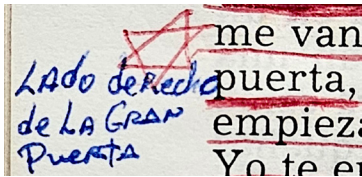 LAdo deRecho
de LA GRAN
PueRTA
me van
puerta,
empieza
Yo te